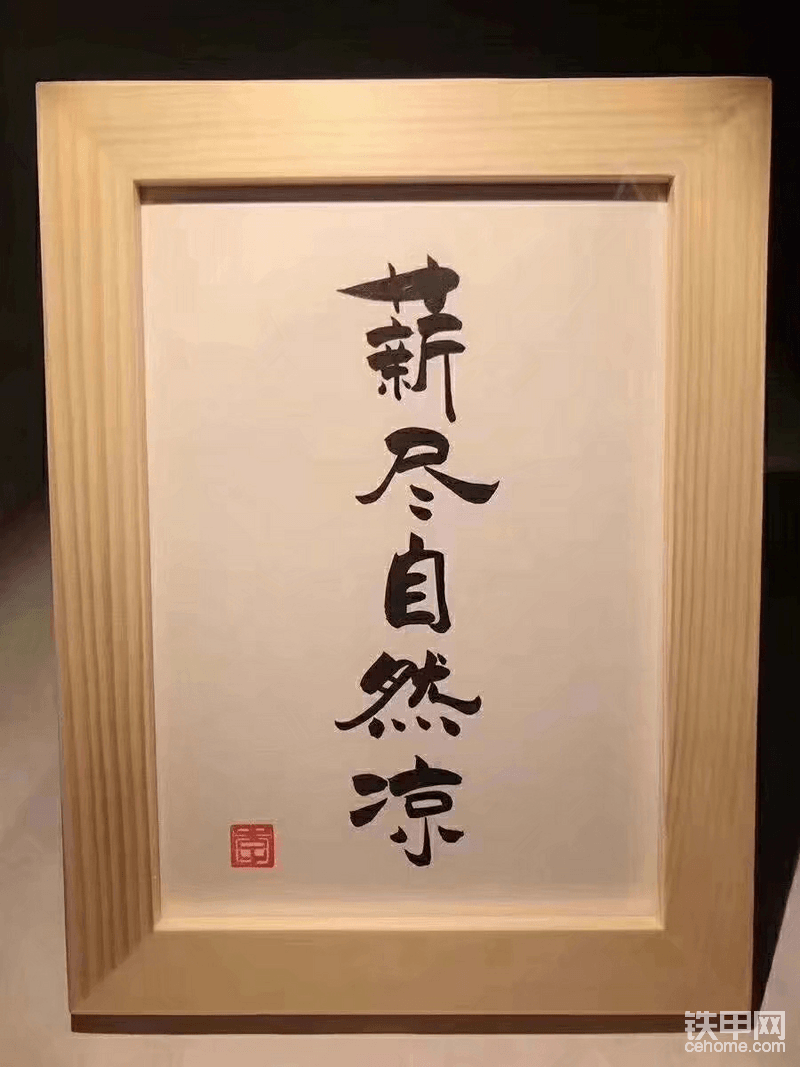 薪尽自然凉
铁甲网
cehome.com